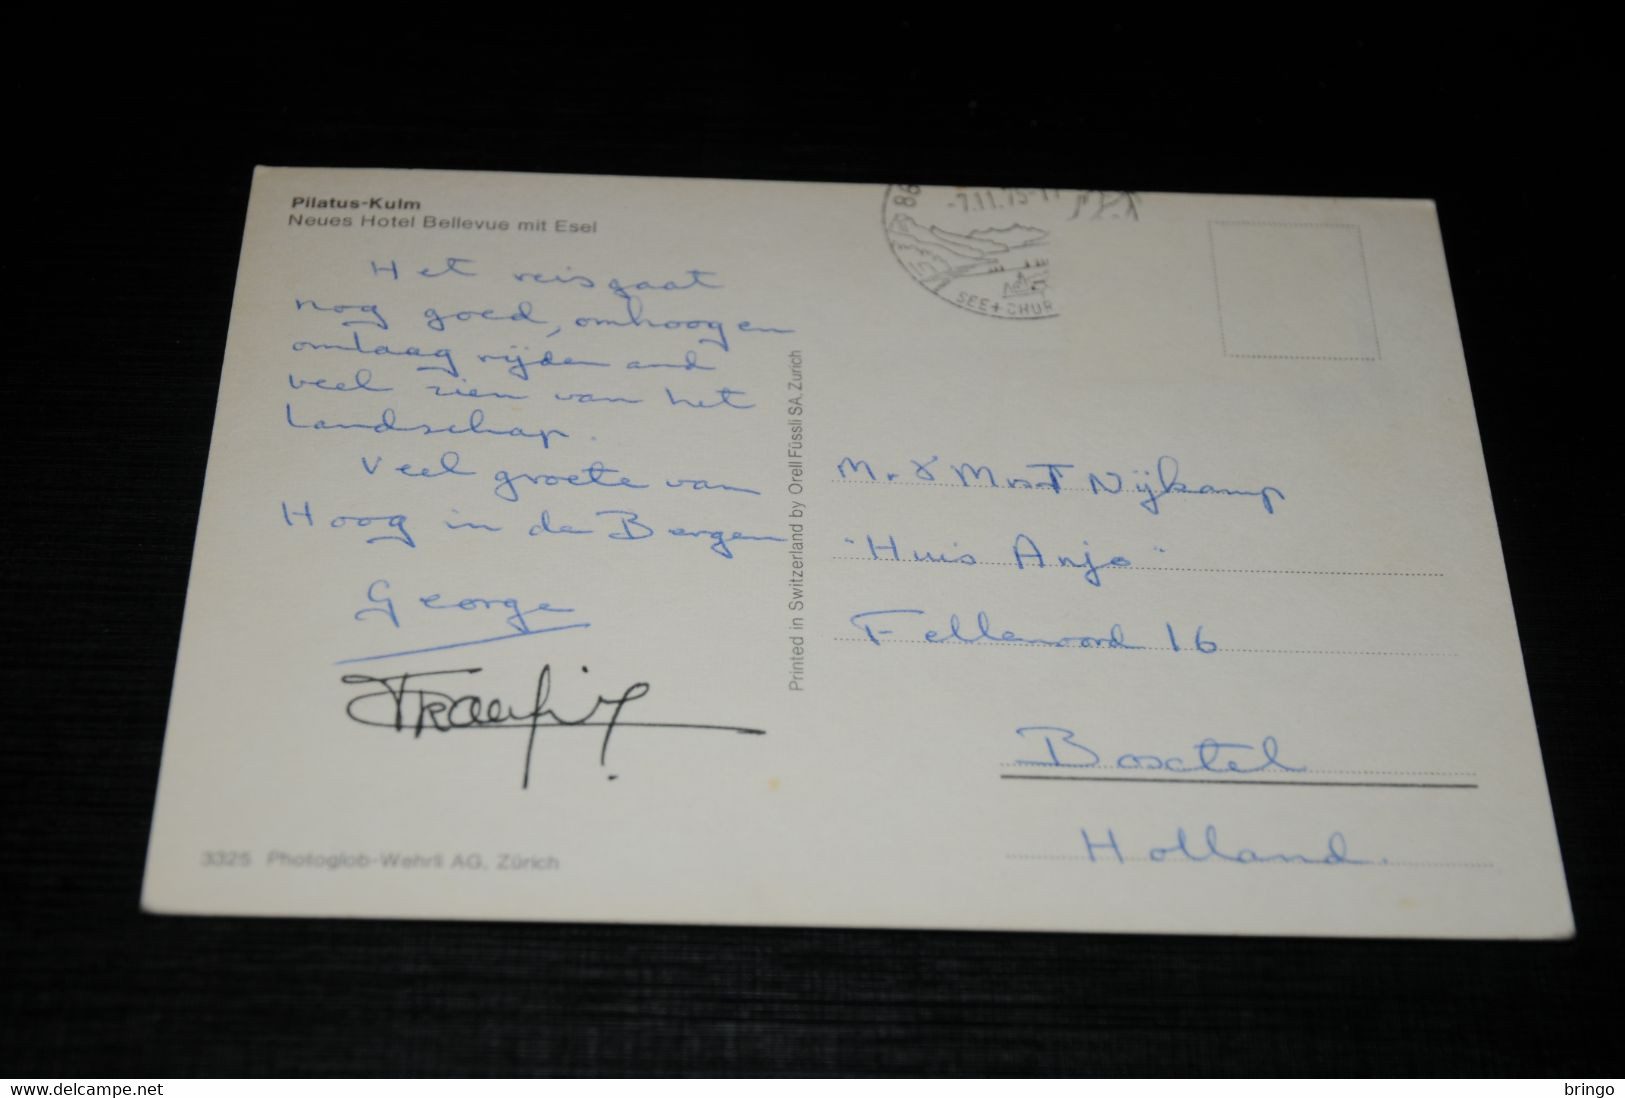 Pilatus-Kulm
Neues Hotel Bellevue mit Esel
Het reis gaat
nog goed, omhoog en
omlaag rijden and
veel zien van het
Landschap.
Veel groete van
Hoog in de Bergen
George
3325 Photoglob-Wehrli AG, Zürich
Printed in Switzerland by Orell Füssli SA, Zürich
-7.11.75-11
SEE + CHUR
Nijkamp
"Huis Anjo"
Fellenoord 16
Boxtel
Holland.
www.delcampe.net
bringo